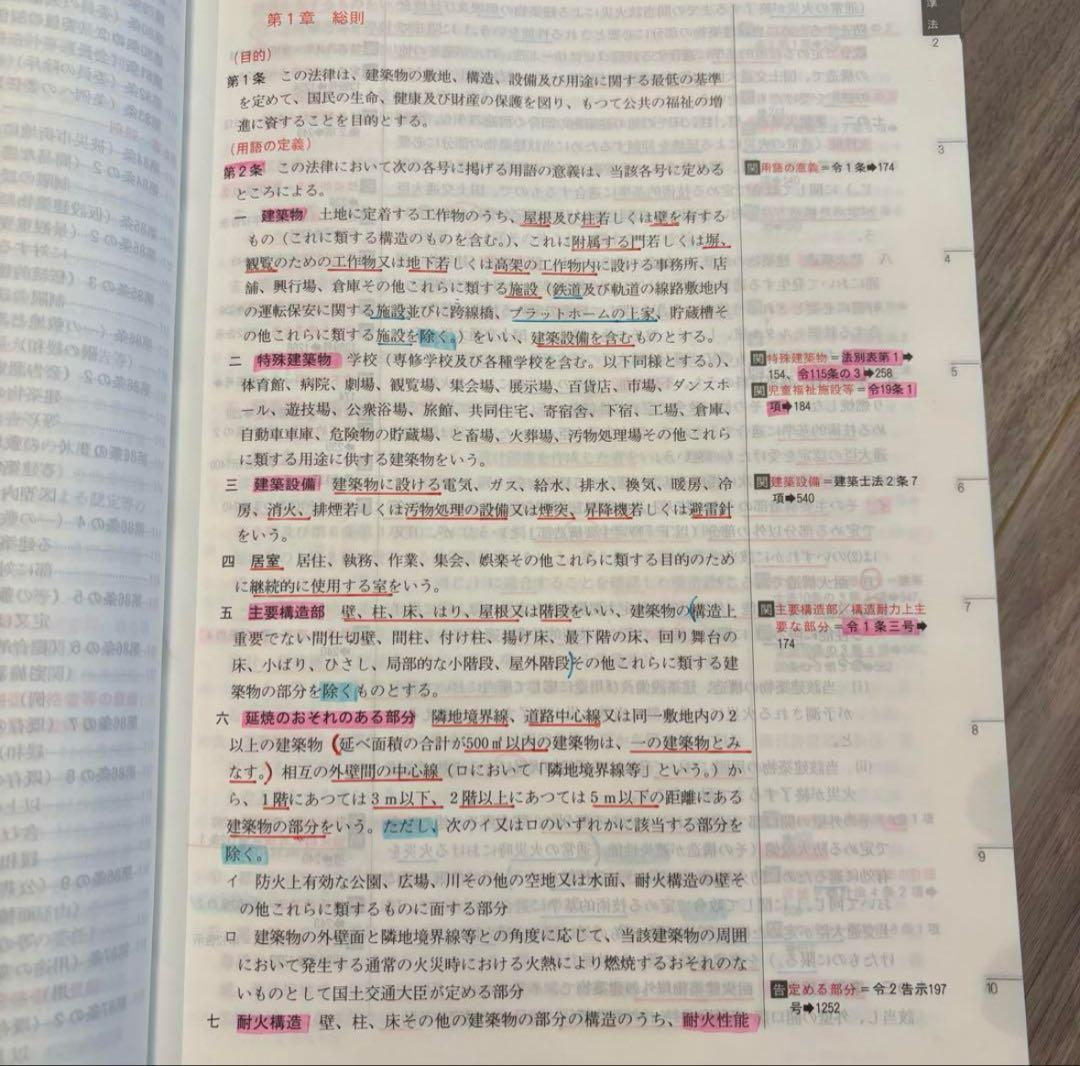 準
法
第1章 総則
（目的）
第1条 この法律は、建築物の敷地、構造、設備及び用途に関する最低の基準
を定めて、国民の生命、健康及び財産の保護を図り、もつて公共の福祉の増
進に資することを目的とする。
（用語の定義）
第2条 この法律において次の各号に掲げる用語の意義は、当該各号に定める
ところによる。
一 建築物 土地に定着する工作物のうち、屋根及び柱若しくは壁を有する
もの（これに類する構造のものを含む。）、これに附属する門若しくは塀、
観覧のための工作物又は地下若しくは高架の工作物内に設ける事務所、店
舗、興行場、倉庫その他これらに類する施設（鉄道及び軌道の線路敷地内
の運転保安に関する施設並びに跨線橋、プラットホームの上家、貯蔵槽そ
の他これらに類する施設を除く。）をいい、建築設備を含むものとする。
二 特殊建築物 学校（専修学校及び各種学校を含む。以下同様とする。）、
体育館、病院、劇場、観覧場、集会場、展示場、百貨店、市場、ダンスホ
ール、遊技場、公衆浴場、旅館、共同住宅、寄宿舎、下宿、工場、倉庫、
自動車車庫、危険物の貯蔵場、と畜場、火葬場、汚物処理場その他これら
に類する用途に供する建築物をいう。
三 建築設備 建築物に設ける電気、ガス、給水、排水、換気、暖房、冷
房、消火、排煙若しくは汚物処理の設備又は煙突、昇降機若しくは避雷針
をいう。
四 居室 居住、執務、作業、集会、娯楽その他これらに類する目的のため
に継続的に使用する室をいう。
五 主要構造部 壁、柱、床、はり、屋根又は階段をいい、建築物の構造上
重要でない間仕切壁、間柱、付け柱、揚げ床、最下階の床、回り舞台の
床、小ばり、ひさし、局部的な小階段、屋外階段その他これらに類する建
築物の部分を除くものとする。
六 延焼のおそれのある部分 隣地境界線、道路中心線又は同一敷地内の2
以上の建築物（延べ面積の合計が500㎡以内の建築物は、一の建築物とみ
なす。）相互の外壁間の中心線（ロにおいて「隣地境界線等」という。）か
ら、1階にあつては3m以下、2階以上にあつては5m以下の距離にある
建築物の部分をいう。ただし、次のイ又はロのいずれかに該当する部分を
除く。
イ 防火上有効な公園、広場、川その他の空地又は水面、耐火構造の壁そ
の他これらに類するものに面する部分
ロ 建築物の外壁面と隣地境界線等との角度に応じて、当該建築物の周囲
において発生する通常の火災時における火熱により燃焼するおそれのな
いものとして国土交通大臣が定める部分
七 耐火構造 壁、柱、床その他の建築物の部分の構造のうち、耐火性能
関用語の意義＝令1条➡174
関特殊建築物＝法別表第1➡
154、令115条の3➡258
関児童福祉施設等＝令19条1
項➡184
関建築設備＝建築士法2条7
項➡540
関主要構造部／構造耐力上主
要な部分＝令1条三号➡
174
告定める部分＝令2告示197
号➡1252
2
3
4
5
6
7
8
9
10